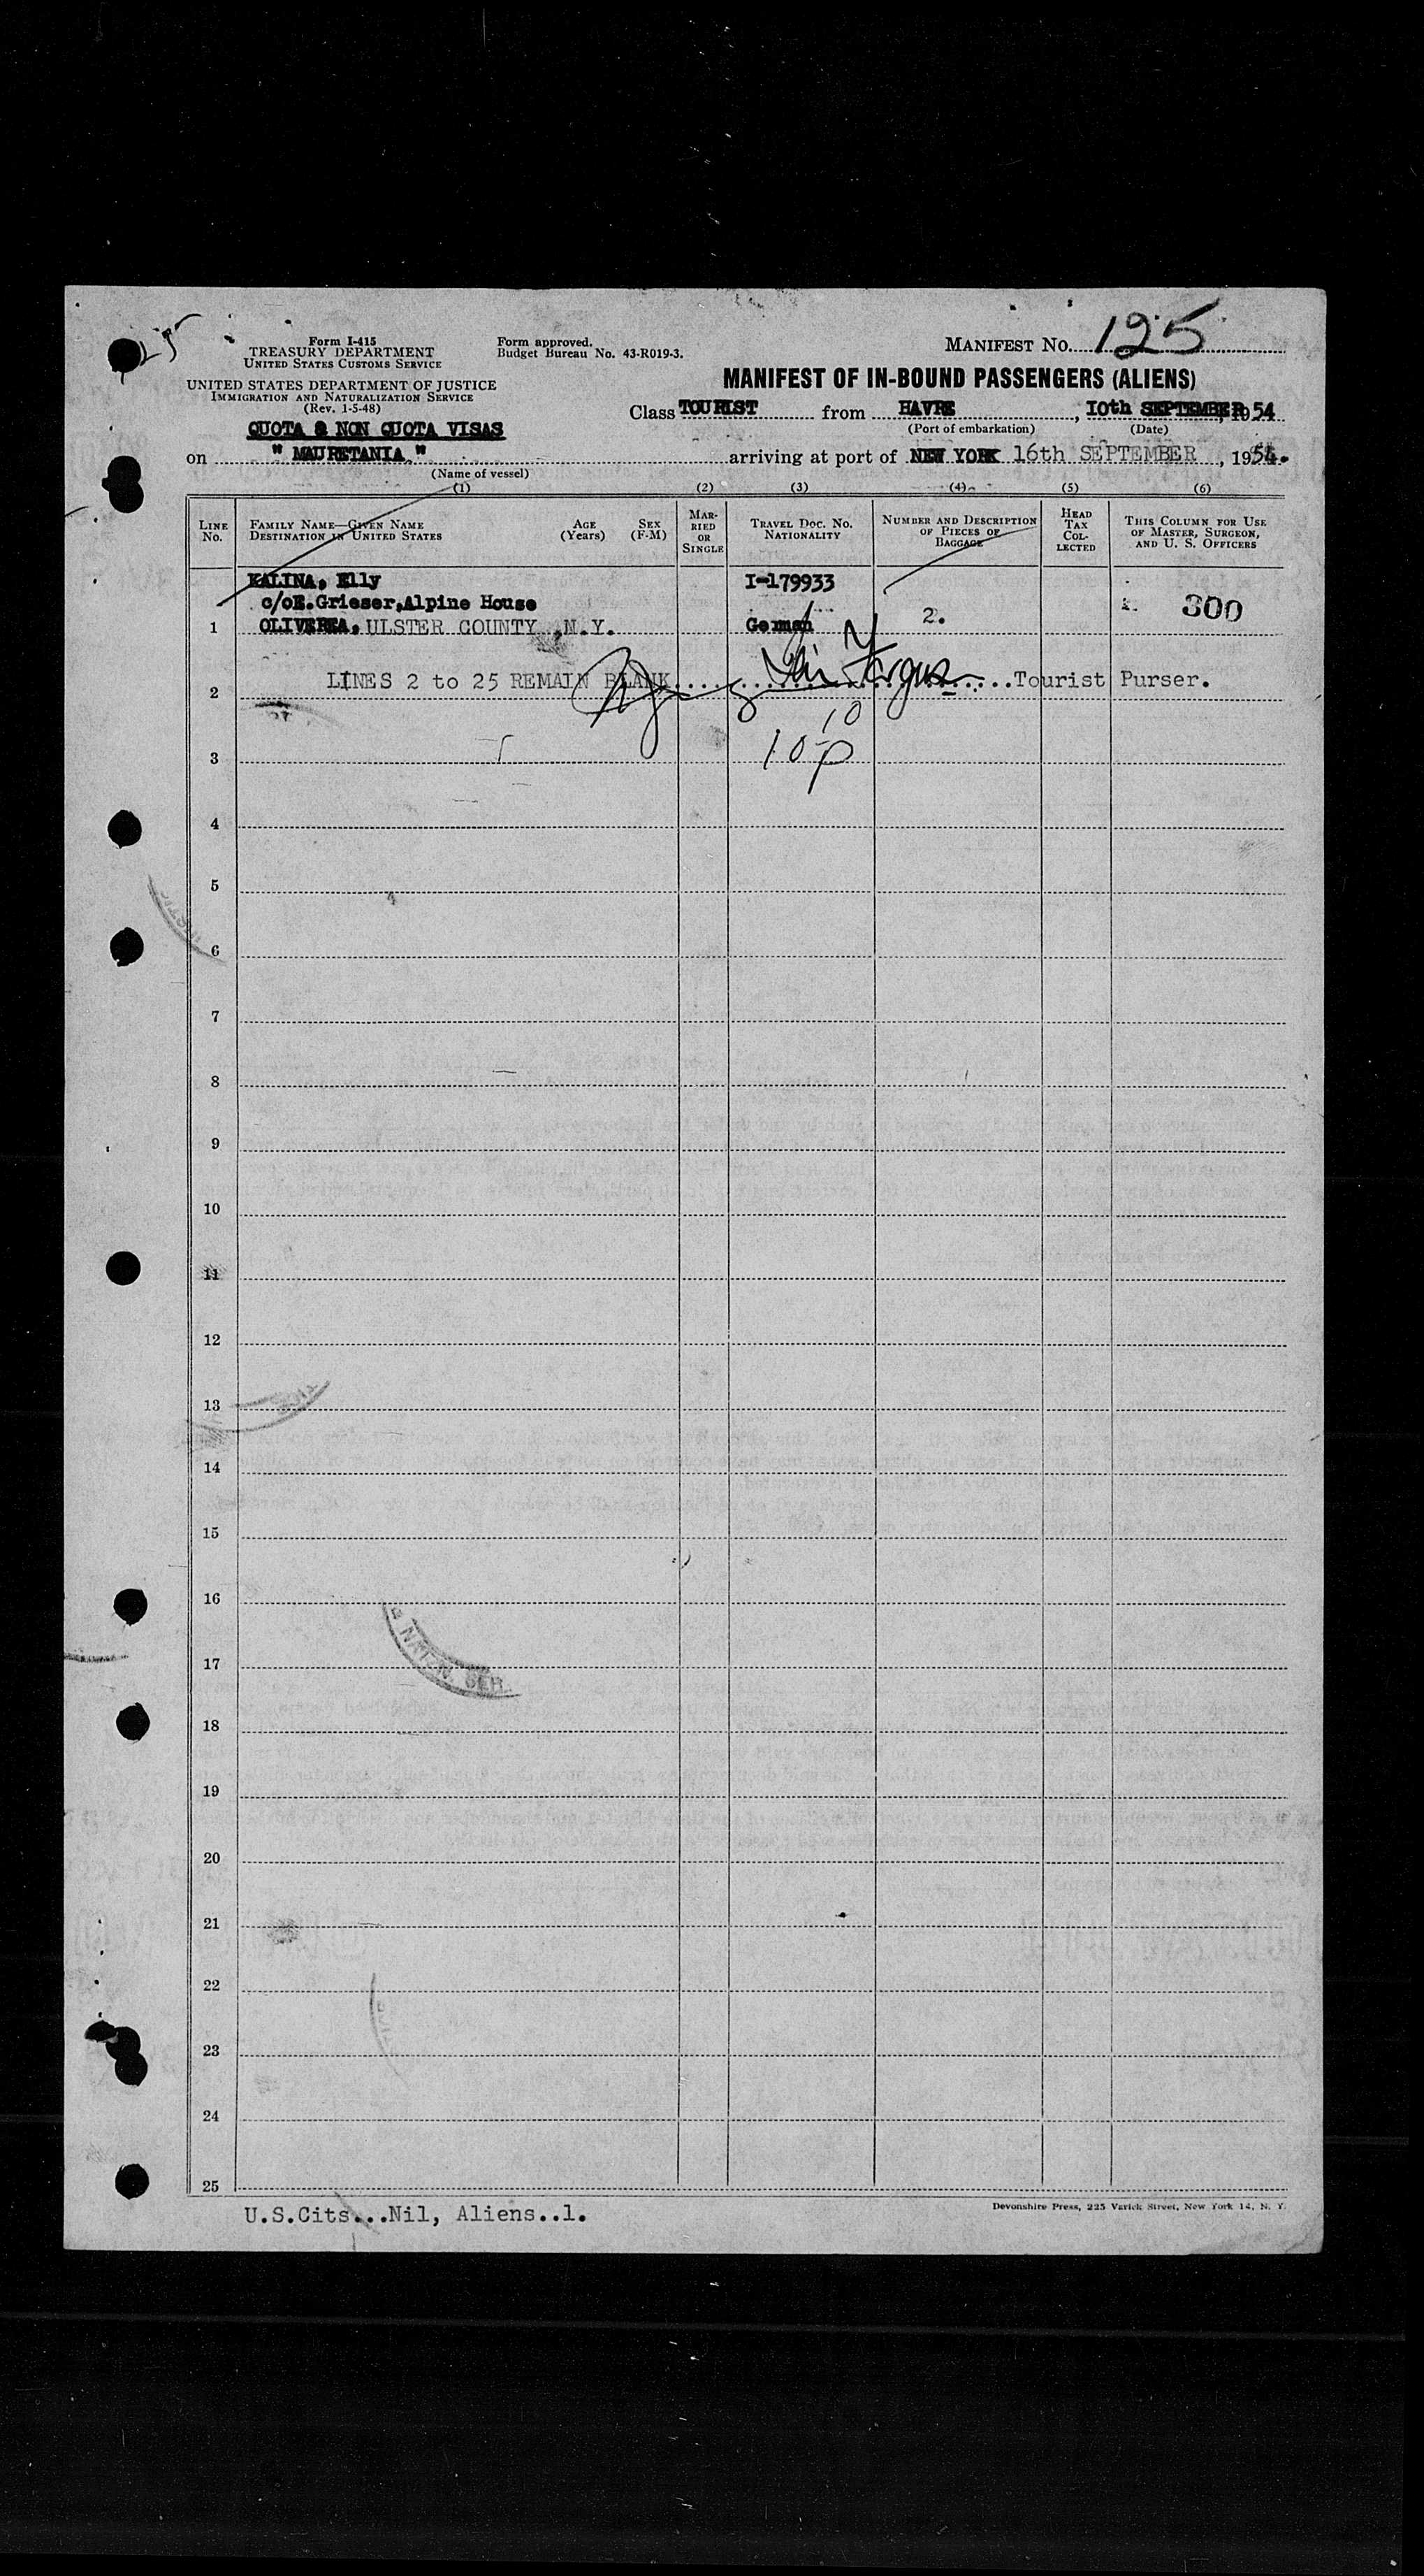 125
Form I-415
TREASURY DEPARTMENT
UNITED STATES CUSTOMS SERVICE
UNITED STATES DEPARTMENT OF JUSTICE
IMMIGRATION AND NATURALIZATION SERVICE
(Rev. 1-5-48)
Form approved.
Budget Bureau No. 43-R019-3.
MANIFEST No. 125
MANIFEST OF IN-BOUND PASSENGERS (ALIENS)
Class TOURIST from HAVRE, 10th SEPTEMBER, 1954
(Port of embarkation) (Date)
QUOTA & NON QUOTA VISAS
on " MAURETANIA " arriving at port of NEW YORK 16th SEPTEMBER, 1954.
(Name of vessel)
(1) (2) (3) (4) (5) (6)
LINE No.
FAMILY NAME—GIVEN NAME
DESTINATION IN UNITED STATES
AGE (Years)
SEX (F-M)
MARRIED OR SINGLE
TRAVEL DOC. NO. NATIONALITY
NUMBER AND DESCRIPTION OF PIECES OF BAGGAGE
HEAD TAX COLLECTED
THIS COLUMN FOR USE OF MASTER, SURGEON, AND U. S. OFFICERS
KALINA, Elly I-179933
c/oE.Grieser,Alpine House 300
1 OLIVEREA, ULSTER COUNTY ,N.Y. German 2.
2 LINES 2 to 25 REMAIN BLANK Tourist Purser.
10
3 10-p
4
5
6
7
8
9
10
11
12
13
14
15
16
& NATZN. SER.
17
18
19
20
21
22
23
24
25
U.S.Cits...Nil, Aliens..1.
Devonshire Press, 225 Varick Street, New York 14, N. Y.